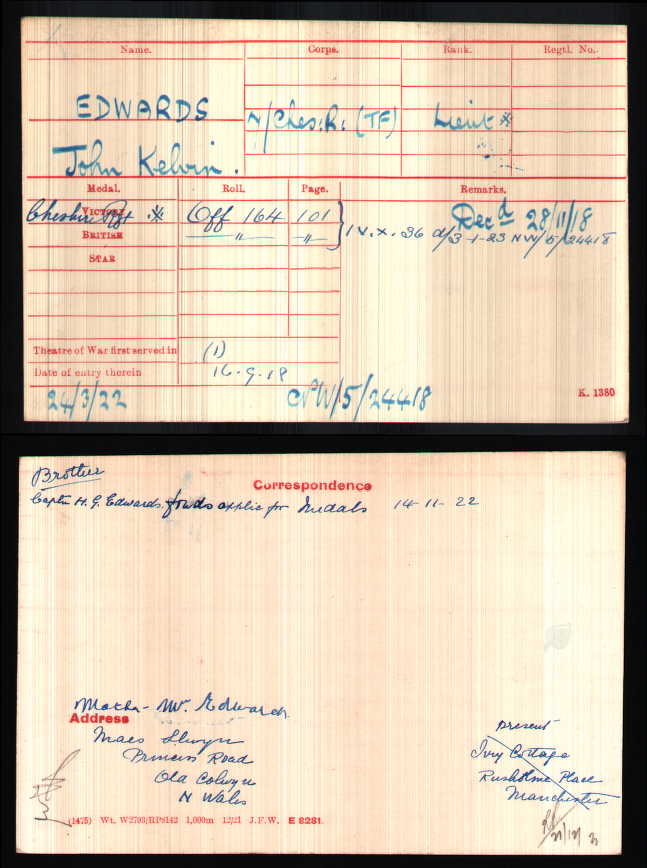 Name. Corps. Rank. Regtl. No.
EDWARDS
John Kelvin.
/Ches: R: (TF) Lieut ※
Medal. Roll. Page. Remarks.
VICTORY Cheshire Rgt ※ Off 164 101 Decd 28/11/18
BRITISH " " 1 V. X. 36 d/3-1-23 NW/5/24418
STAR
Theatre of War first served in (1)
Date of entry therein 16.9.18
24/3/22 NW/5/24418 K. 1380
Brother
Correspondence
Captn H. G. Edwards. fwds applic for Medals 14-11-22
Mother - Mrs. Edwards.
Address
Maes Llwyn
Princes Road
Old Colwyn
N Wales
present
Ivy Cottage
Rusholme Place
Manchester
(1475) Wt. W2703/RP8142 1,000m 12/21 J.F.W. E 8281.